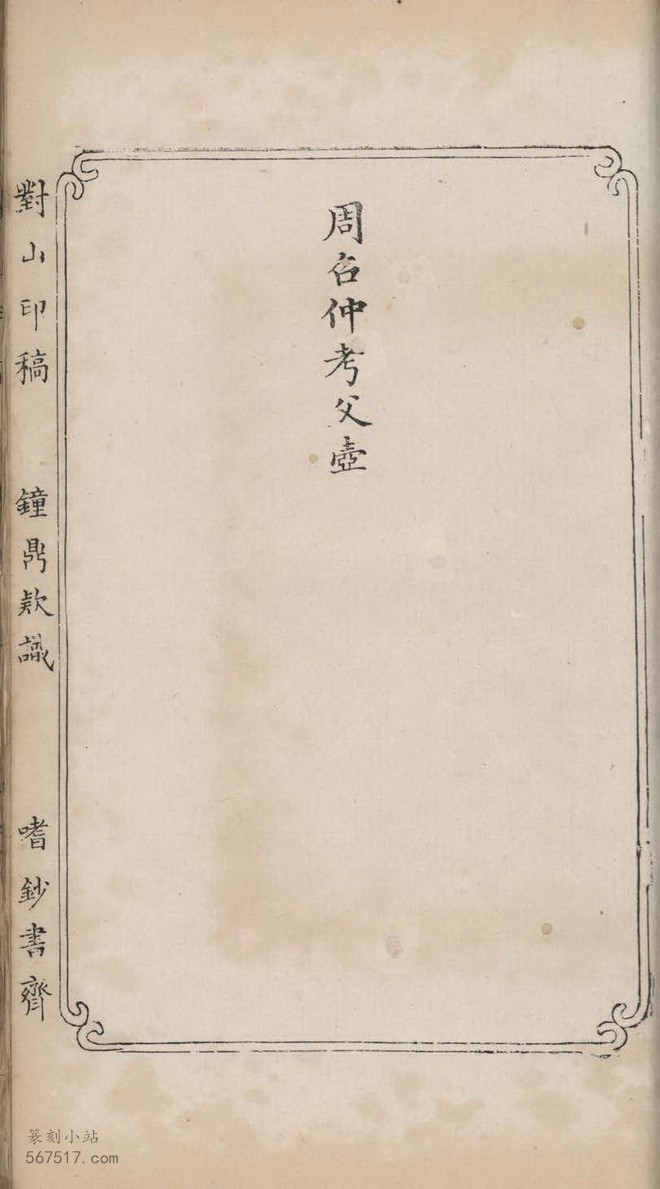 周召仲考父壺
對山印稿 鐘鼎欵識 嗜鈔書齋
篆刻小站
567517.com